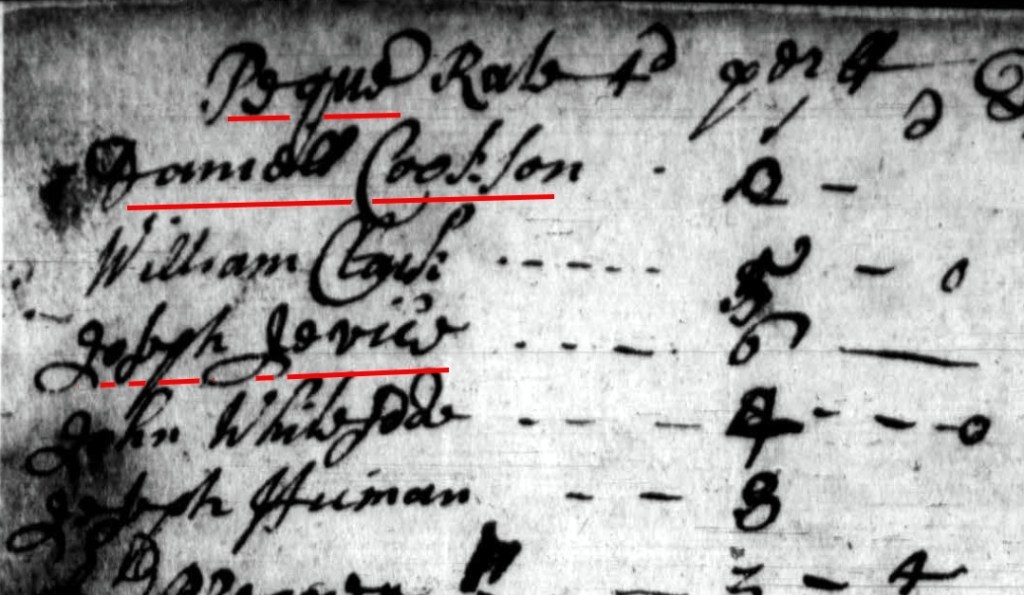 Peque Rate 4d per £
Daniell Cookson 2 –
William Clark 5 – 0
Joseph Jervice 6
John Whiteside 4 – 0
Joseph Human 8
3 – 4